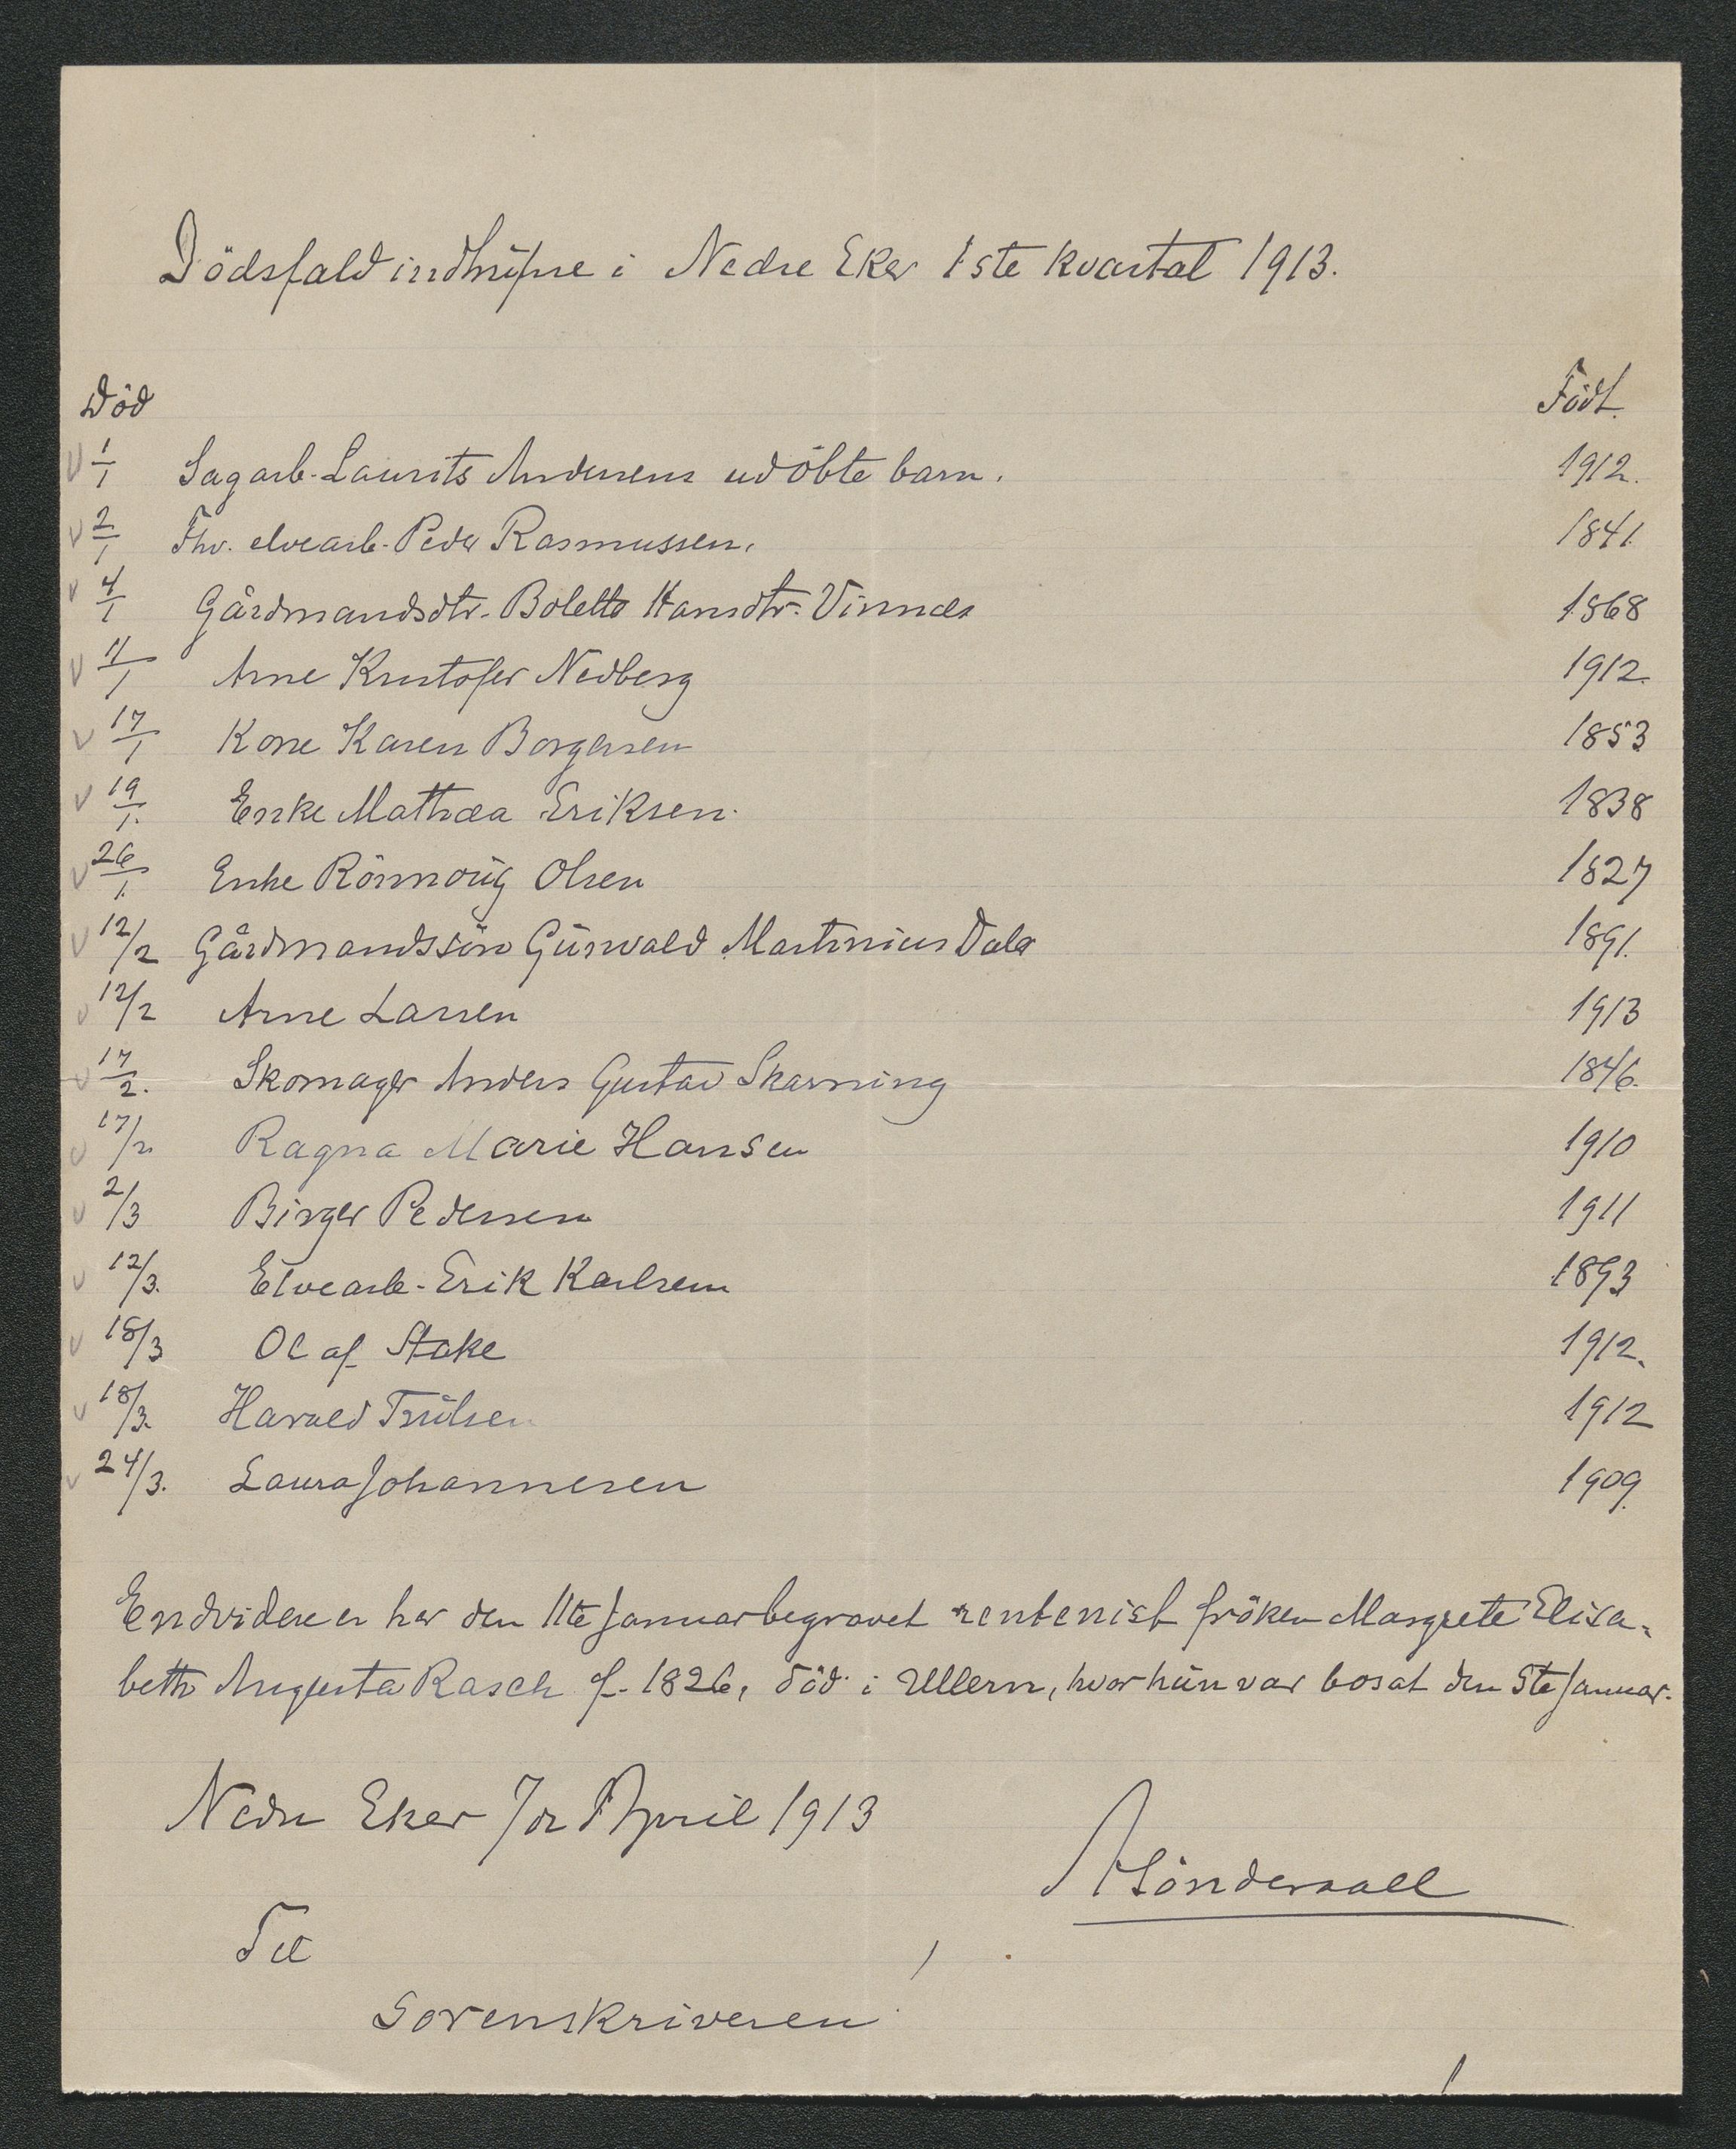 Dödsfald indtrufne i Nedre Eker 1ste kvartal 1913.
Död Född.
1/1 Sagarb. Laurits Andersens udöbte barn. 1912.
2/1 Fhv. elvearb. Peder Rasmussen. 1841.
4/1 Gårdmandsdtr. Bolette Hansdtr. Vinnæs 1868
11/1 Arne Kristofer Nedberg 1912.
17/1 Kone Karen Borgersen 1853
19/1. Enke Mathea Eriksen. 1838
26/1. Enke Rönnoüg Olsen 1827
12/2 Gårdmandssön Günvald Martinius Dala 1891.
12/2 Arne Larsen 1913
17/2. Skomager Anders Gustav Skarning 1846.
17/2. Ragna Marie Hansen 1910
2/3 Birger Pedersen 1911
12/3. Elvearb. Erik Karlsen 1893
18/3 Olaf Stake 1912.
18/3. Harald Trülsen 1912
24/3. Laura Johannesen 1909.
Endvidere er her den 11te Januar begravet rentenist fröken Margrete Elisa-
beth Augusta Rasch f. 1826, död i Ullern, hvor hün var bosat den 5te Januar.
Nedre Eker 7de April 1913
Sönderaall
Til
Sorenskriveren